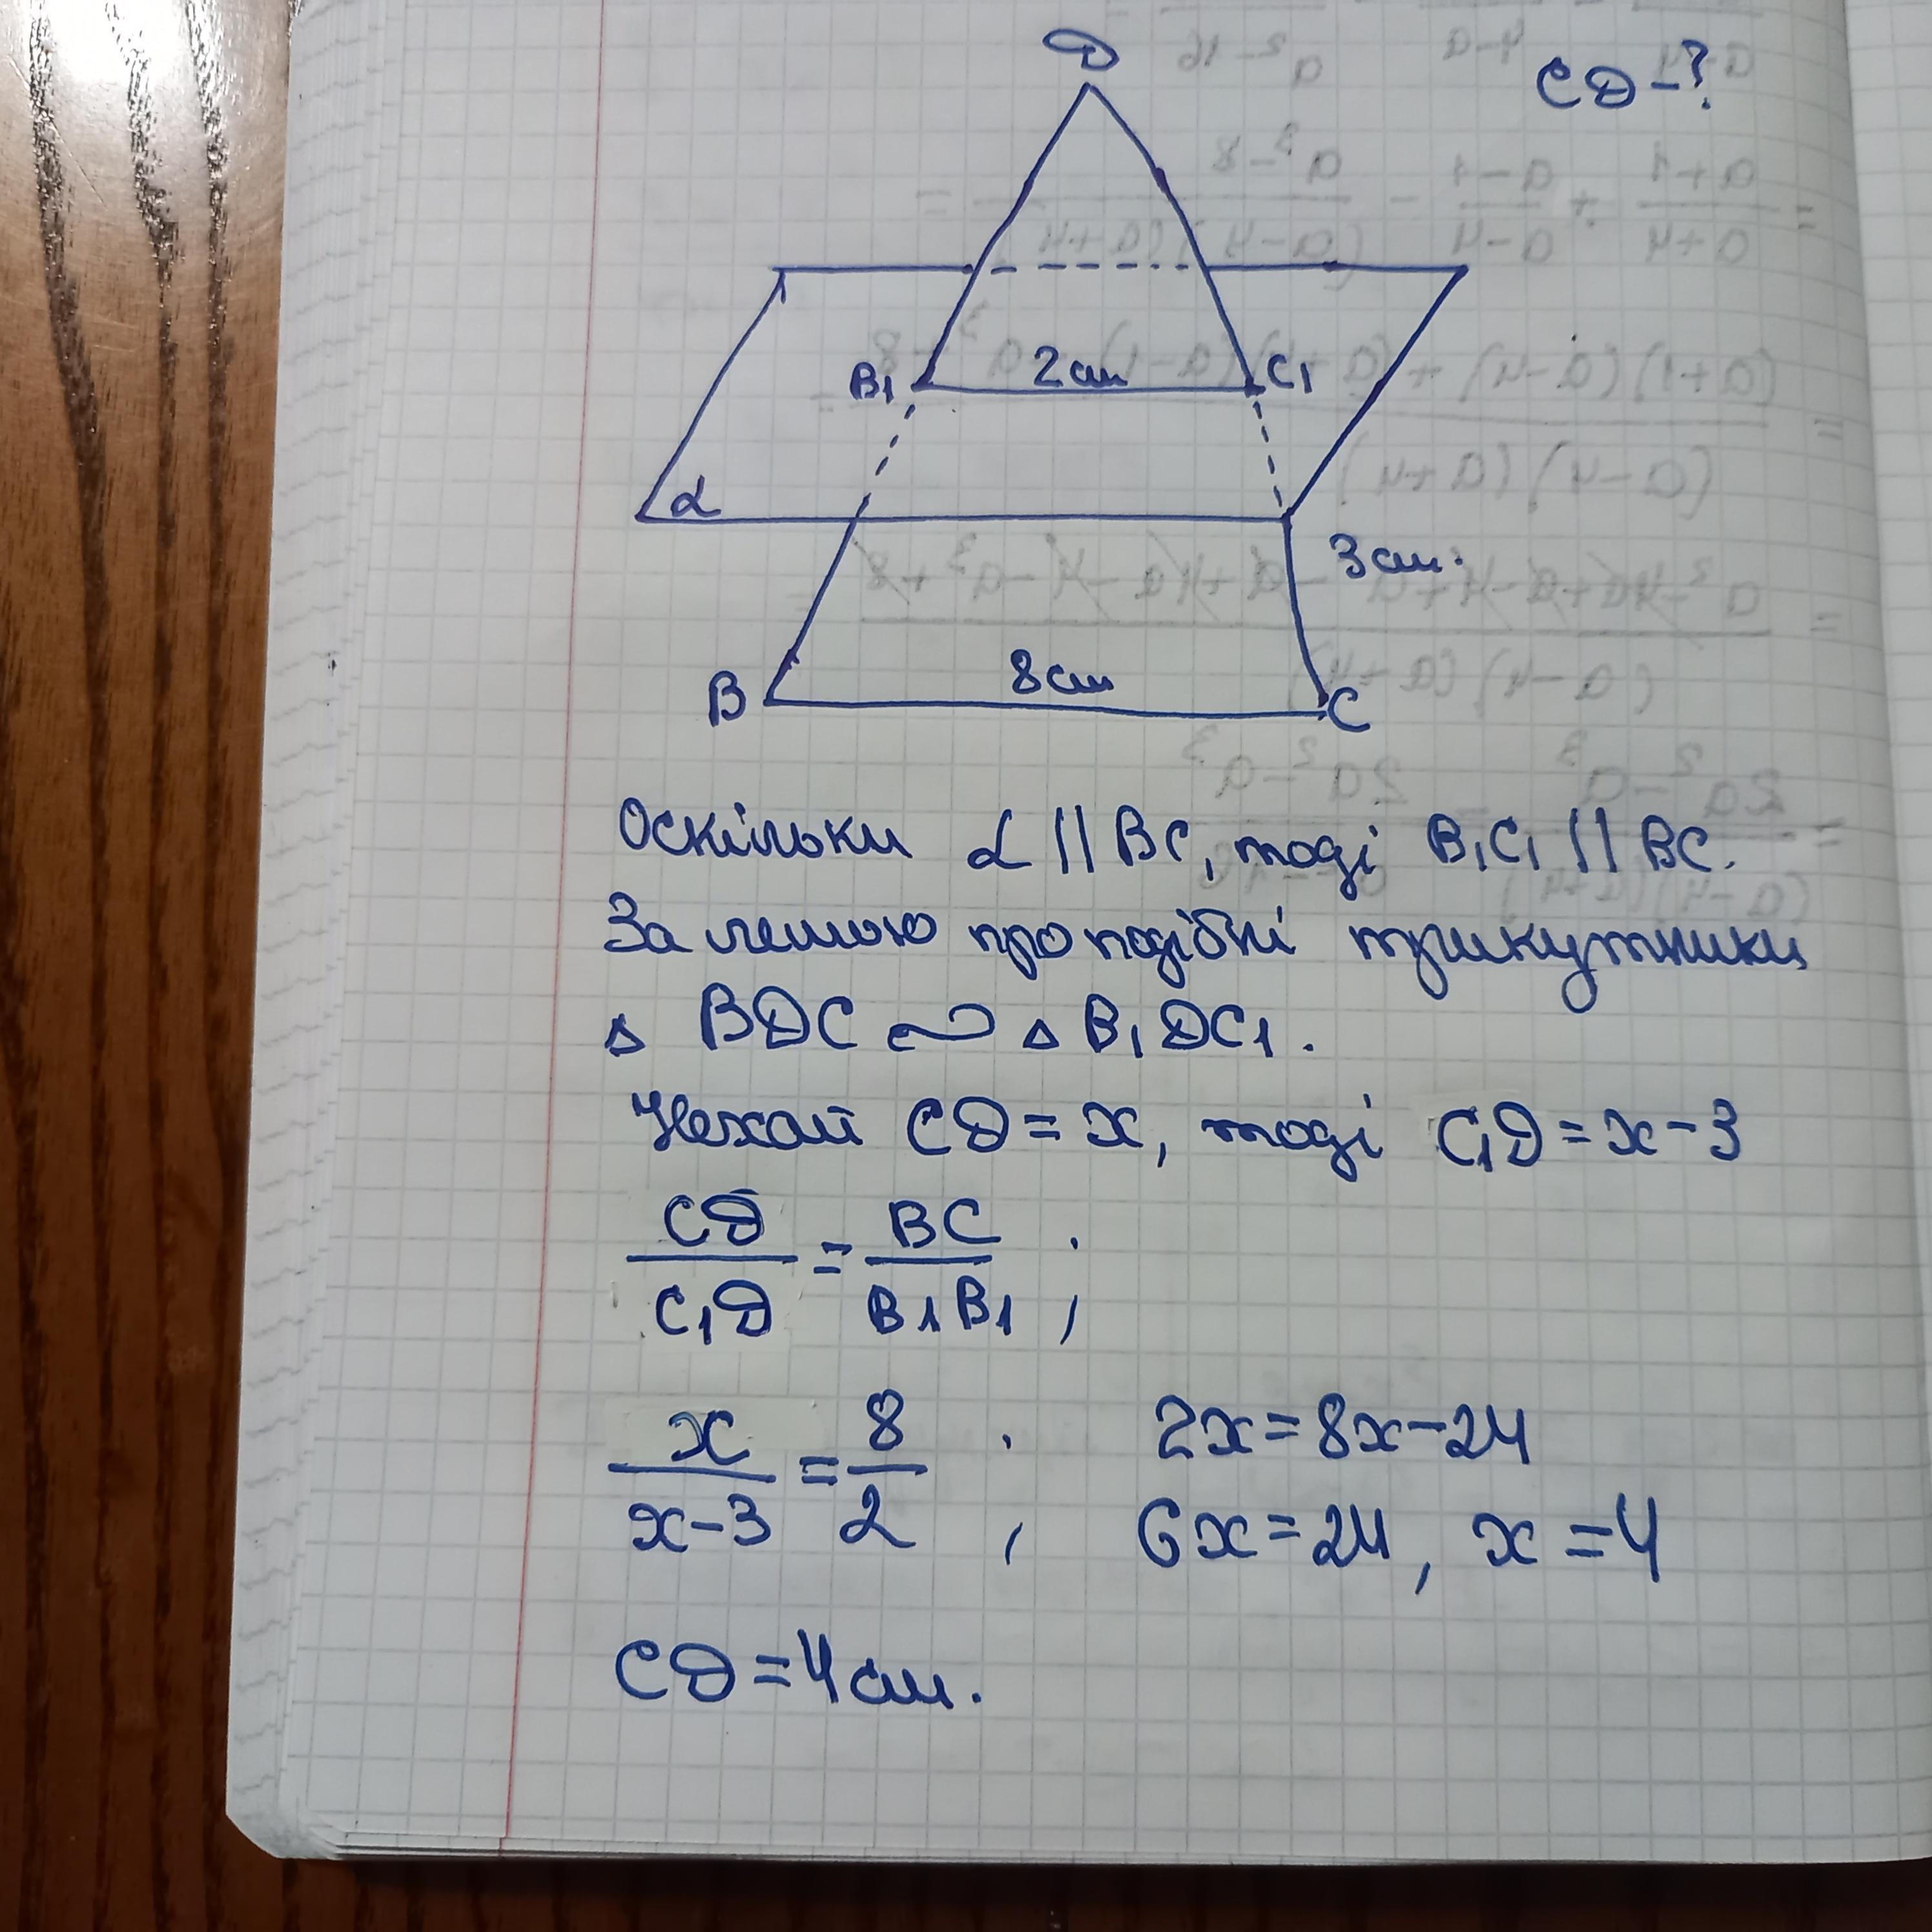 D
CD-?
B₁ 2 см C₁
α
3 см.
8 см
B C
Оскільки α || BC, тоді B₁C₁ || BC.
За лемою про подібні трикутники
Δ BDC ∾ Δ B₁DC₁.
Нехай CD = x, тоді C₁D = x-3
CD/C₁D = BC/B₁B₁ ;
x/(x-3) = 8/2 ; 2x = 8x-24
6x = 24, x = 4
CD = 4 см.